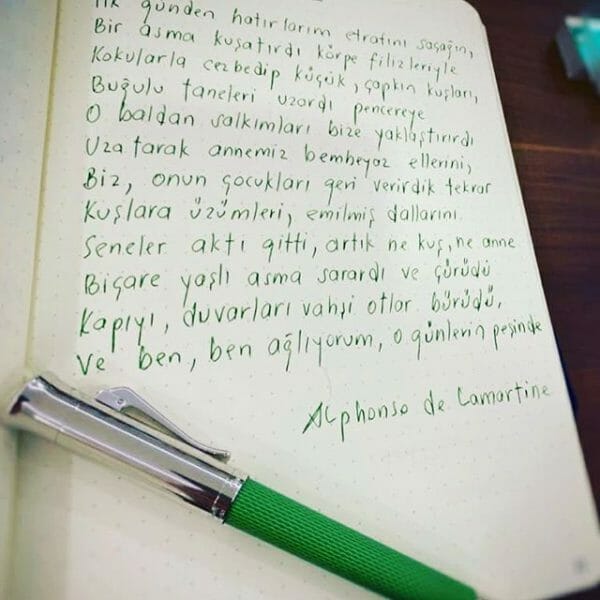 İlk günden hatırlarım etrafını saçağın,
Bir asma kuşatırdı körpe filizleriyle
Kokularla cezbedip küçük, çapkın kuşları,
Buğulu taneleri uzardı pencereye
O baldan salkımları bize yaklaştırırdı
Uzatarak annemiz bembeyaz ellerini,
Biz, onun çocukları geri verirdik tekrar
Kuşlara üzümleri, emilmiş dallarını.
Seneler aktı gitti, artık ne kuş, ne anne
Biçare yaşlı asma sarardı ve çürüdü
Kapıyı, duvarları vahşi otlar bürüdü,
Ve ben, ben ağlıyorum, o günlerin peşinde
Alphonso de Lamartine